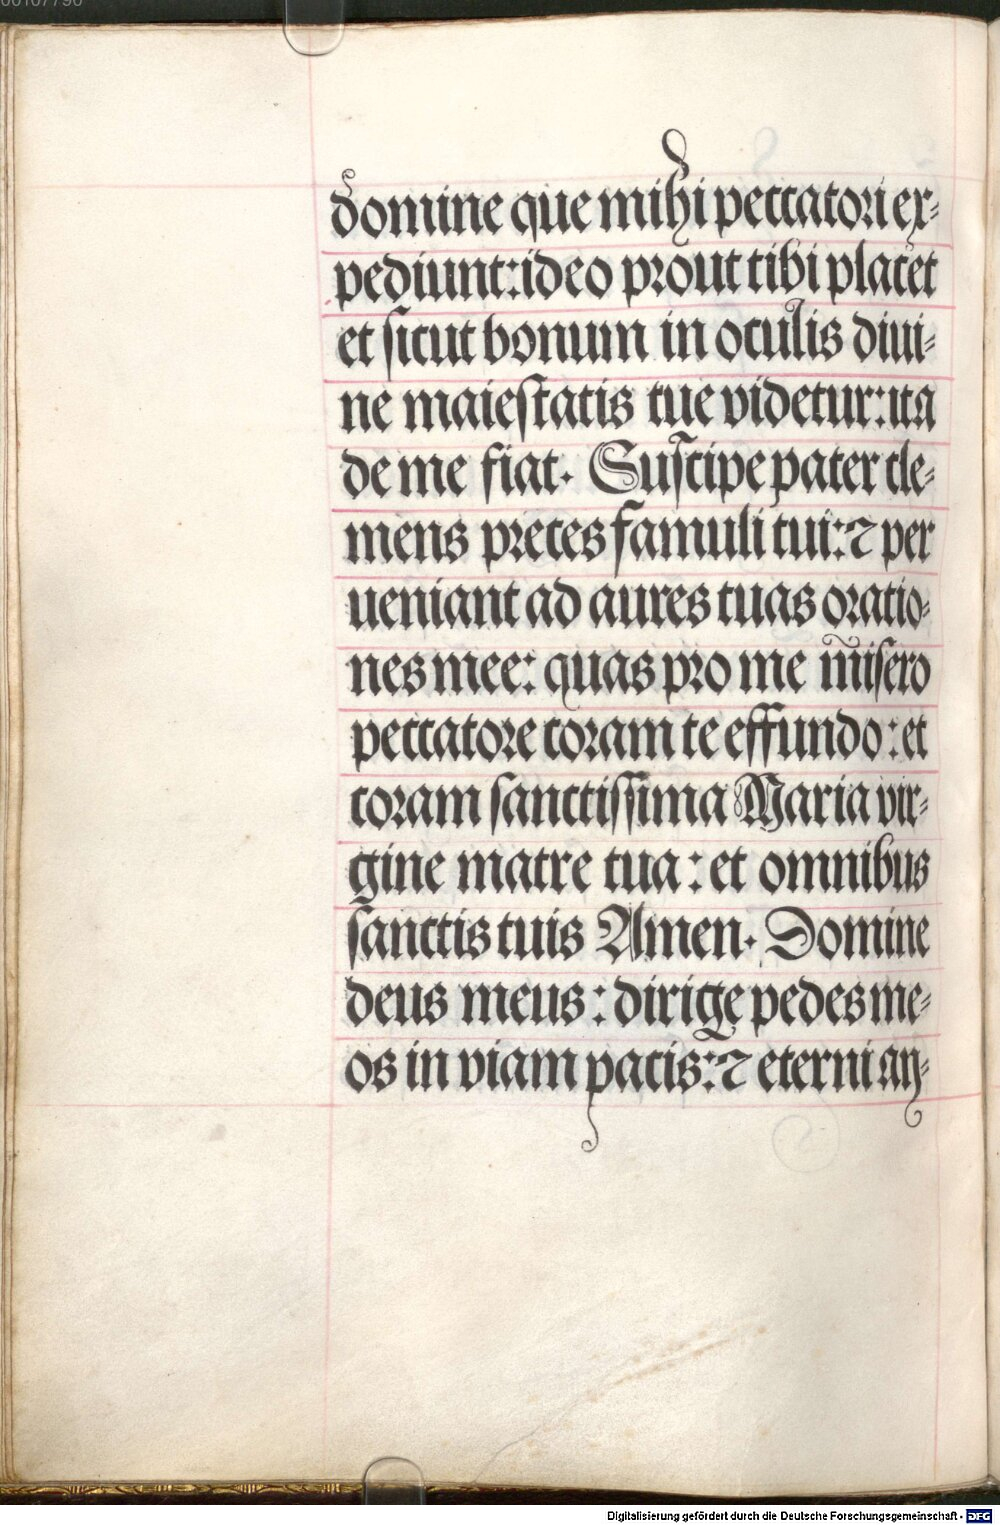 00107790
domine que mihi peccatori ex=
pediunt: ideo prout tibi placet
et ſicut bonum in oculis diui=
ne maieſtatis tue videtur: ita
de me fiat. Suſcipe pater cle=
mens preces famuli tui: ⁊ per
ueniant ad aures tuas oratio=
nes mee: quas pro me miſero
peccatore coram te effundo: et
coram ſanctiſſima Maria vir=
gine matre tua: et omnibus
ſanctis tuis Amen. Domine
deus meus: dirige pedes me=
os in viam pacis: ⁊ eterni an=
Digitalisierung gefördert durch die Deutsche Forschungsgemeinschaft - DFG